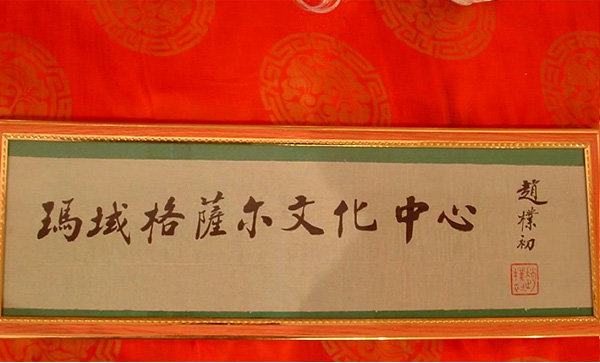 瑪域格薩尔文化中心
趙樸初